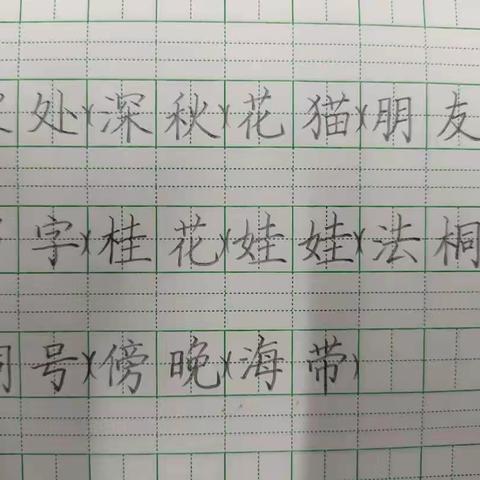 处)(深秋)(花猫)(朋友
字)(桂花)(娃娃)(法桐
号)(傍晚)(海带)